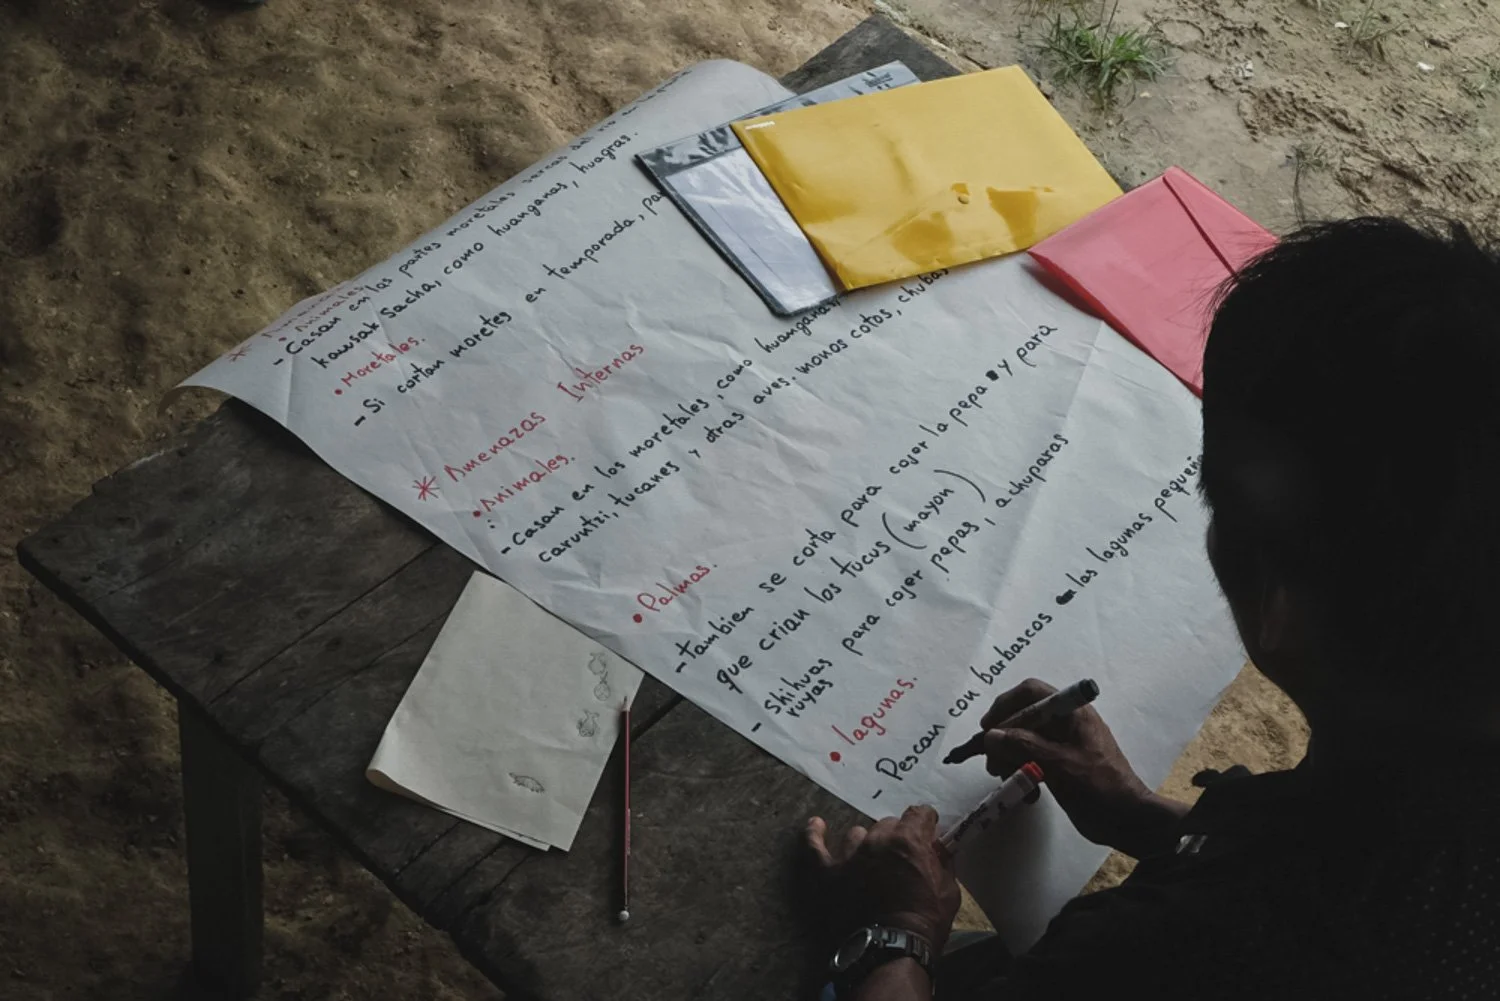 * 
• Animales.
- Casan en las partes moretales sercas del
kawsak Sacha, como huanganas, huagras.
• Moretales.
- Si cortan moretes en temporada,
* Amenazas Internas
• Animales.
- Casan en los moretales, como huanganas,
caruntzi, tucanes y otras aves. monos cotos, chubas
• Palmas.
- tambien se corta para cojer la pepa y para
que crian los tucus (mayon)
- shihuas para cojer pepas, achuparas
ruyas
• lagunas.
- Pescan con barbascos en las lagunas